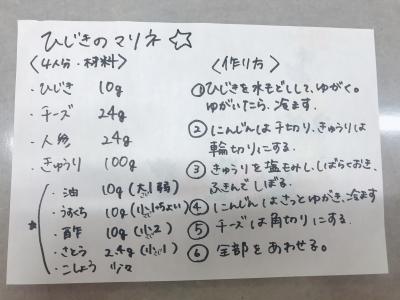 ひじきのマリネ☆
〈4人分・材料〉
・ひじき 10g
・チーズ 24g
・人参 24g
・きゅうり 100g
★
・油 10g(大1弱)
・うすくち 10g(小1ちょい)
・酢 10g(小2)
・さとう 2.4g(小1)
・こしょう 少々
〈作り方〉
①ひじきを水もどしして、ゆがく。
ゆがいたら、冷ます.
②にんじんは千切り、きゅうりは
輪切りにする.
③きゅうりを塩もみし、しばらくおき、
ふきんでしぼる.
④にんじんはさっとゆがき、冷ます
⑤チーズは角切りにする.
⑥全部をあわせる。